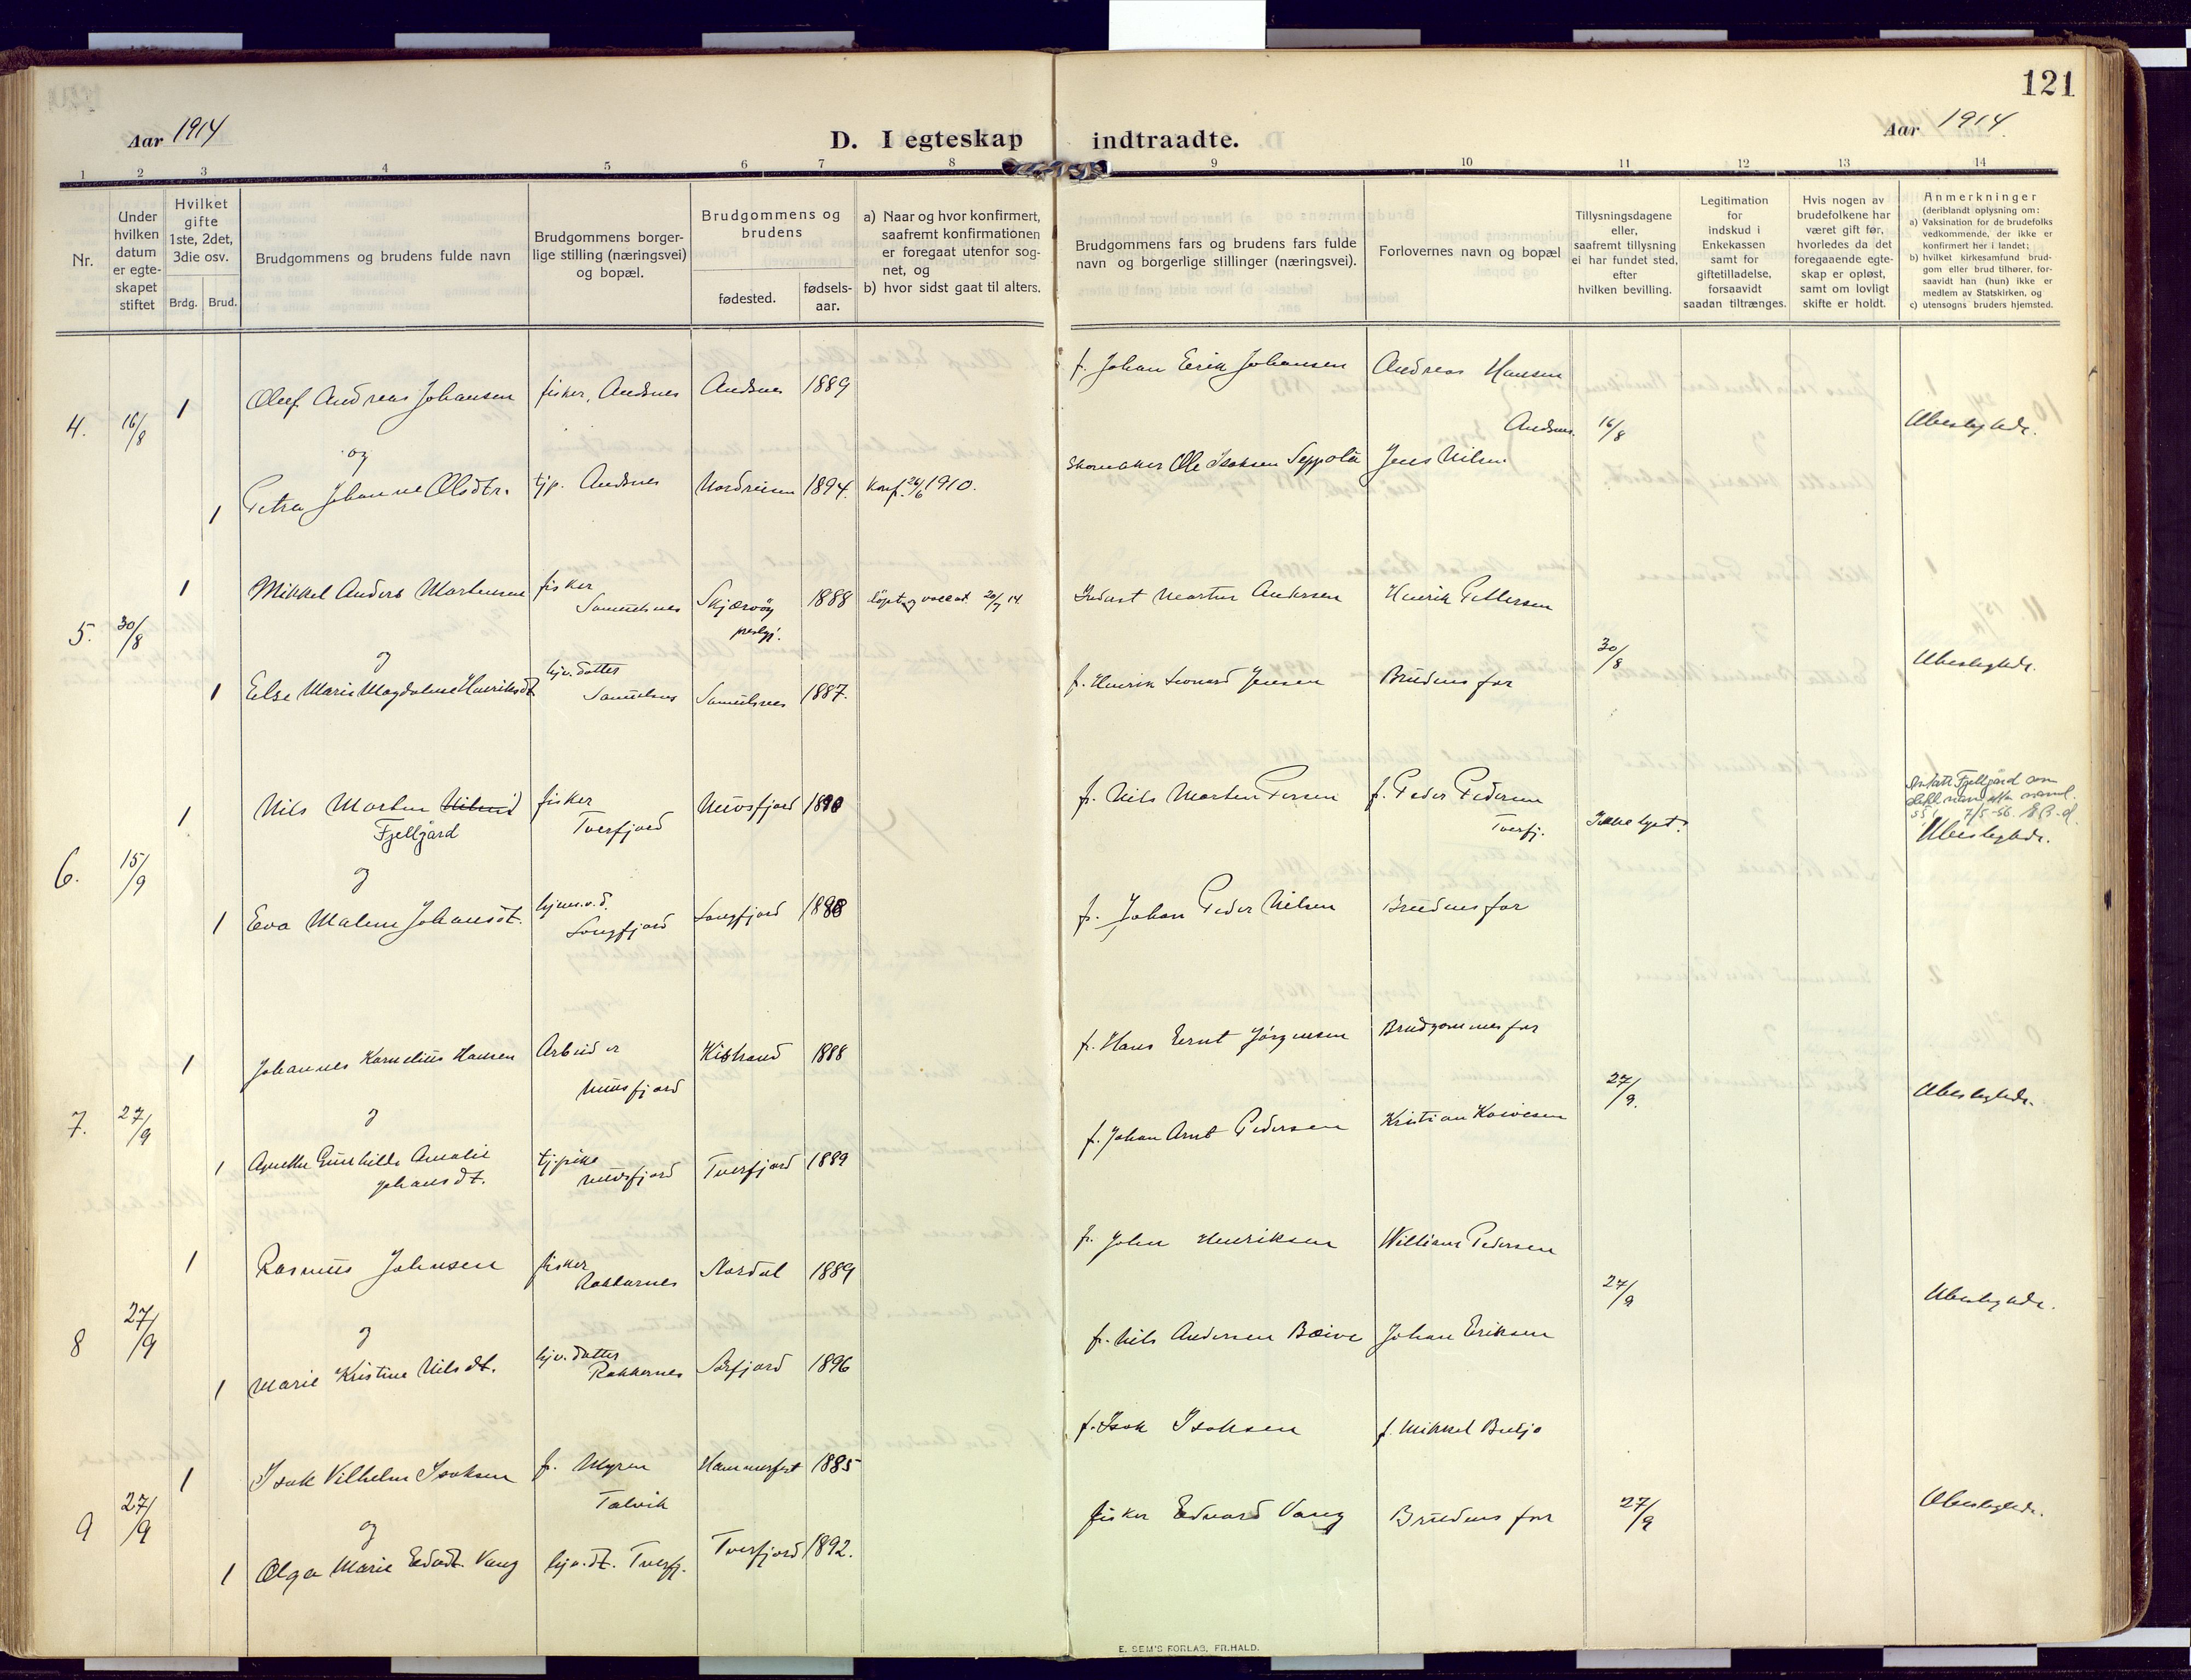 121
Aar 1914
D. I egteskap indtraadte.
Aar 1914.
1 2 3 4 5 6 7 8 9 10 11 12 13 14
Nr.
Under
hvilken
datum
er egte-
skapet
stiftet
Hvilket
gifte
1ste, 2det,
3die osv.
Brdg. Brud.
Brudgommens og brudens fulde navn
Brudgommens borger-
lige stilling (næringsvei)
og bopæl.
Brudgommens og
brudens
fødested.
fødsels-
aar.
a) Naar og hvor konfirmert,
saafremt konfirmationen
er foregaat utenfor sog-
net, og
b) hvor sidst gaat til alters.
Brudgommens fars og brudens fars fulde
navn og borgerlige stillinger (næringsvei).
Forlovernes navn og bopæl
Tillysningsdagene
eller,
saafremt tillysning
ei har fundet sted,
efter
hvilken bevilling.
Legitimation
for
indskud i
Enkekassen
samt for
giftetilladelse,
forsaavidt
saadan tiltrænges.
Hvis nogen av
brudefolkene har
været gift før,
hvorledes da det
foregaaende egte-
skap er opløst,
samt om lovligt
skifte er holdt.
Anmerkninger
(deriblandt oplysning om:
a) Vaksination for de brudefolks
vedkommende, der ikke er
konfirmert her i landet;
b) hvilket kirkesamfund brud-
gom eller brud tilhører, for-
saavidt han (hun) ikke er
medlem av Statskirken, og
c) utensogns bruders hjemsted.
4. 16/8
1 Oluf Andreas Johansen fisker, Andsnes Andsnes 1889 f. Johan Erik Johansen Andreas Hansen
Andsnes. 16/8 Ubeslegtede.
og
1 Petra Johanne Olsdtr. tjp. Andsnes Nordreisen 1894. Konf. 26/6 1910. Skomaker Ole Isaksen Seppola Jens Nilsen
5. 30/8
1 Mikkel Anders Mortensen fisker
Samuelsnes Skjærvøy
prestgj. 1888 20/7 14. Morten Andersen Henrik Pettersen
og 30/8 Ubeslegtede.
1 Else Marie Magdalene Henriksdt. hjv. datter
Samuelsnes Samuelsnes 1887. f. Henrik Leonard Jensen Brudens far
6. 15/9
1 Nils Morten Nilsen
Fjellgård fisker
Tverfjord Nuvsfjord 1890 f. Nils Morten Persen f. Peder Pedersen
Tverfj. Ikke lyst. Fjellgård som
7/5-56.
Ubeslegtede.
og
1 Eva Malene Johansdt. hjem.v.d.
Langfjord Langfjord 1888 f. Johan Peder Nilsen Brudens far
7. 27/9
1 Johannes Kornelius Hansen Arbeider
Nuvsfjord Kistrand 1888 f. Hans Ernt Jørgensen Brudgommens far
og 27/9. Ubeslegtede.
1 Agnethe Gunhilde Amalie
Johansdt. tj.pike
Nuvsfjord Tverfjord 1889 f. Johan Arnt Pedersen Kristian
8 27/9
1 Rasmus Johnsen fisker
Rakkernes Nordal 1889 f. John Henriksen William Pedersen
og 27/9 Ubeslegtede.
1 Marie Kristine Nilsdt. hjv. datter
Rakkernes Sørfjord 1896 f. Nils Andersen Bæive Johan Eriksen
9 27/9
1 Isak Vilhelm Isaksen f. Myren
Talvik Hammerfest 1885 f. Isak Isaksen f. Mikkel
og 27/9 Ubeslegtede.
1 Olga Marie Edvdt. Vang hjv.dt. Tverfj. Tverfjord 1892. fisker Edvard Vang Brudens far
E. SEM'S FORLAG, FR.HALD.